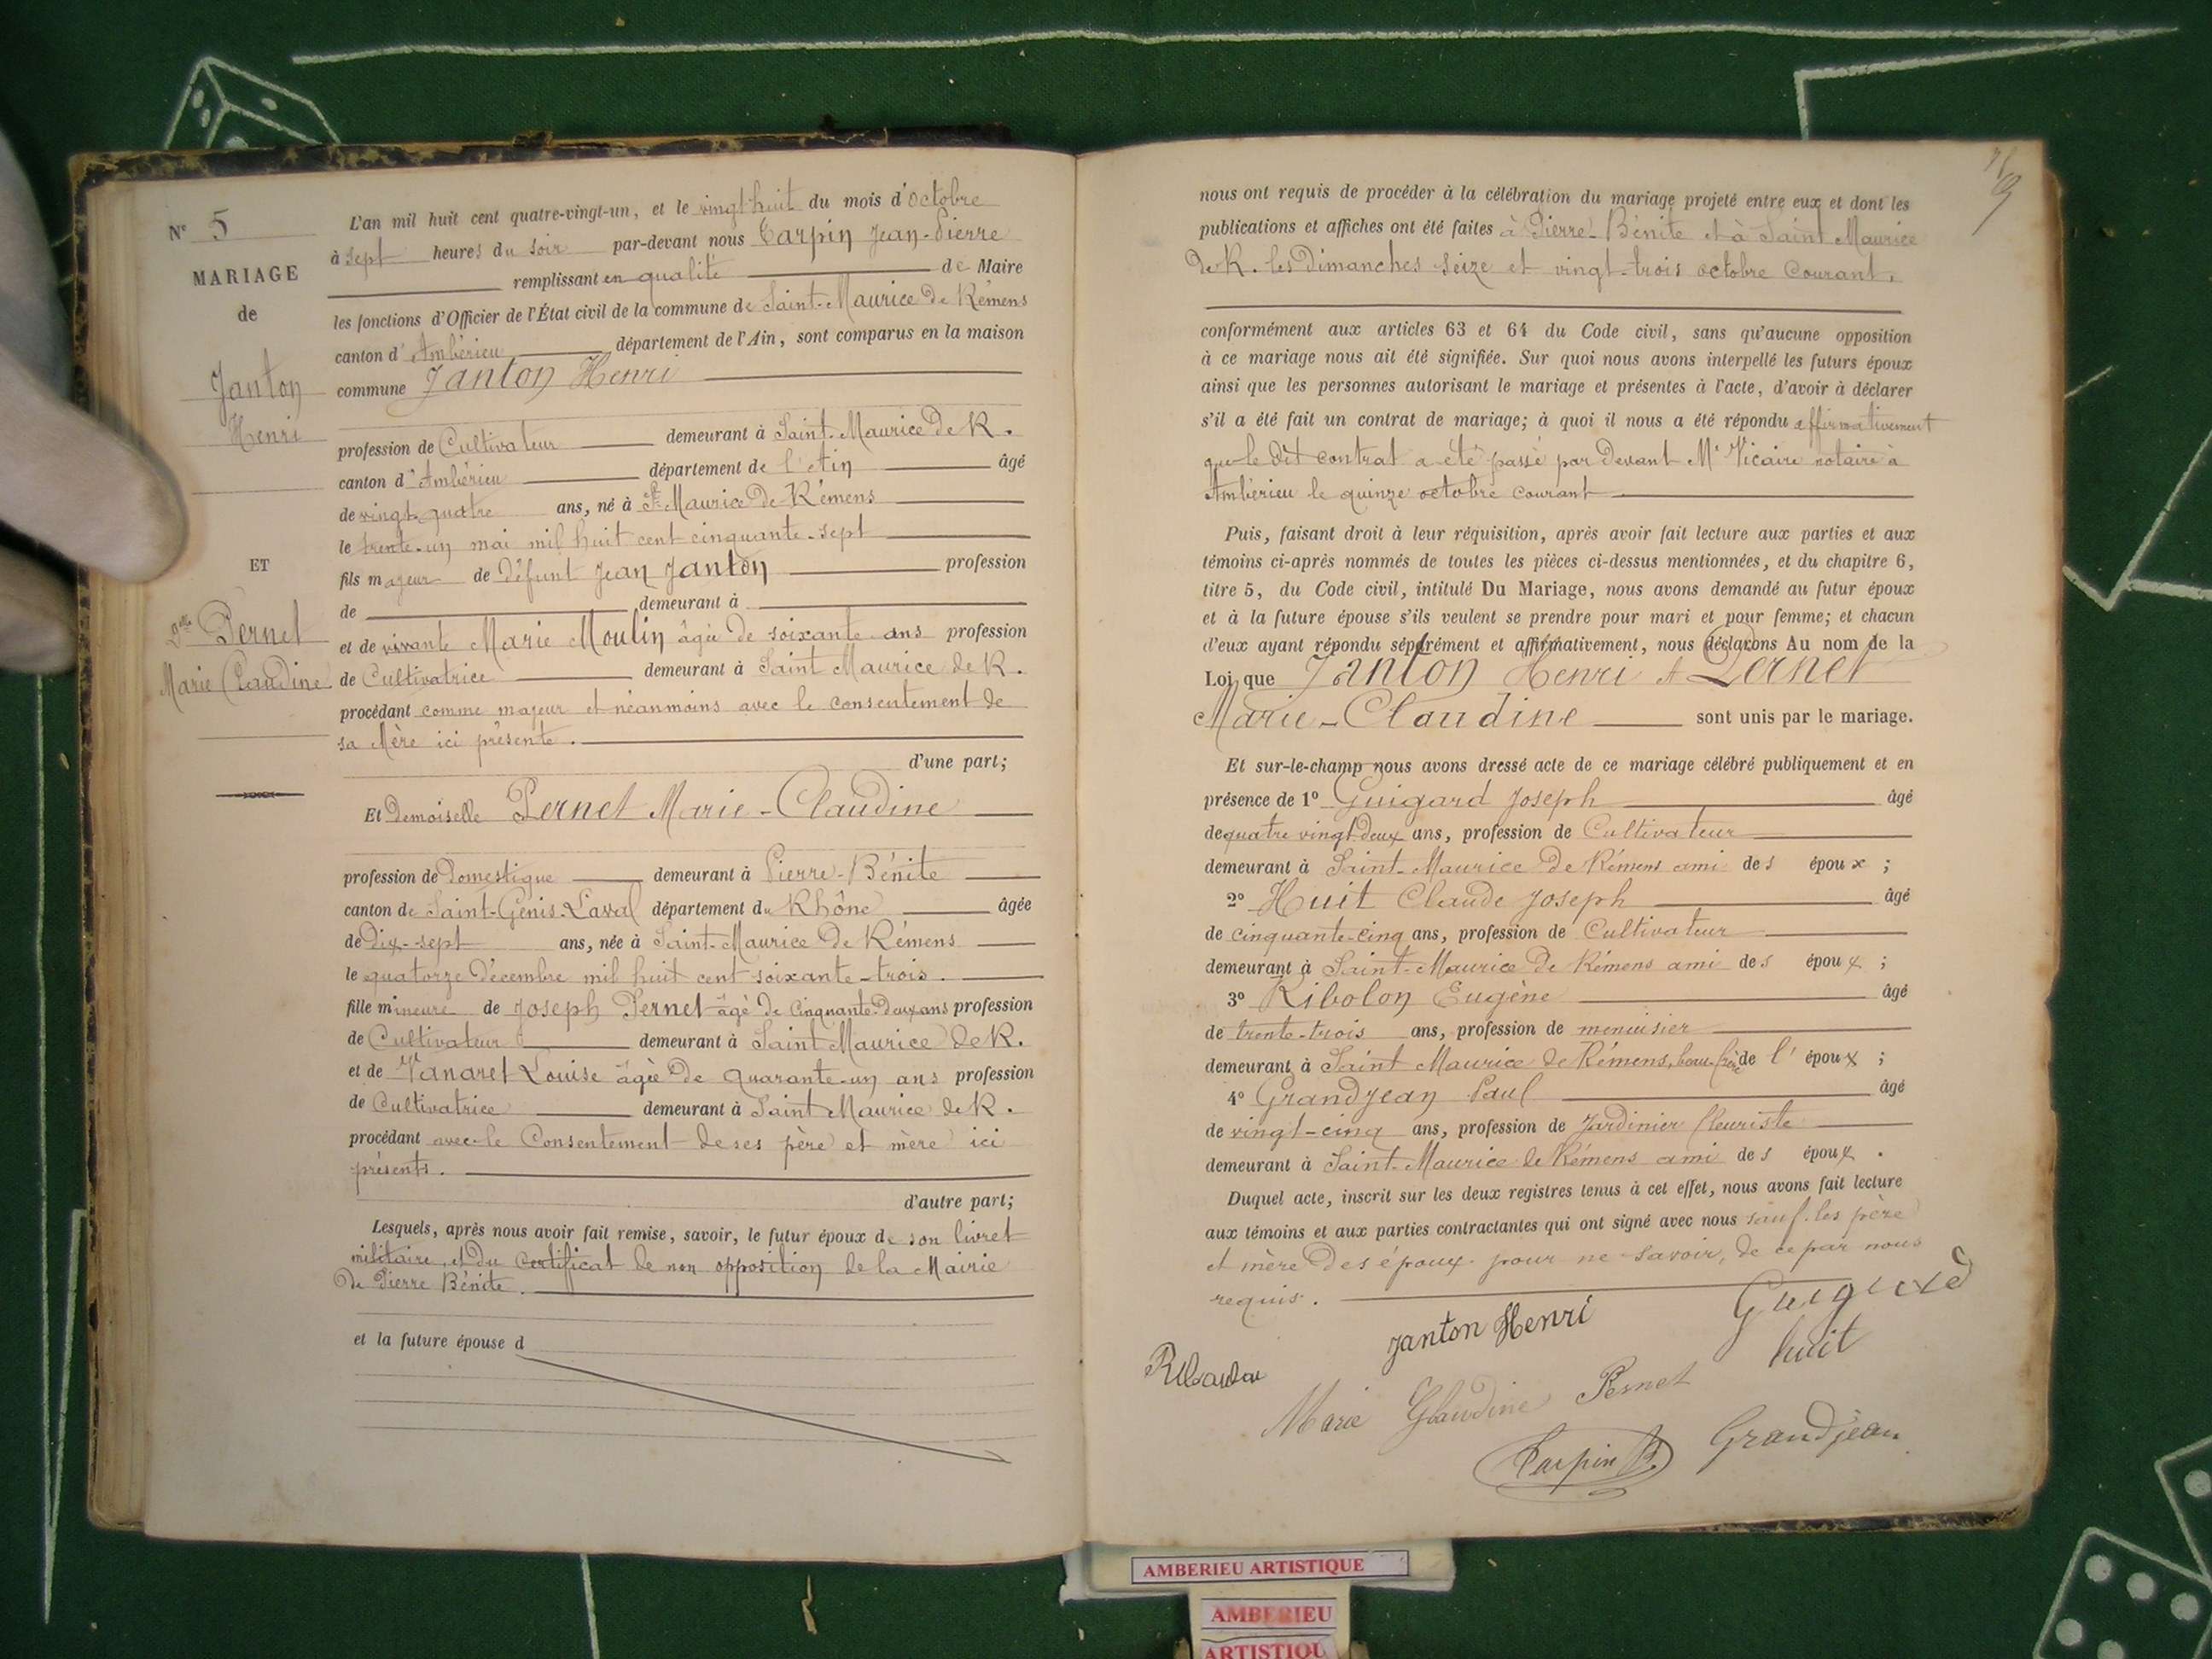 N° 5
MARIAGE
de
Janton
Henri
ET
Dlle Pernet
Marie Claudine
L'an mil huit cent quatre-vingt-un, et le vingt-huit du mois d'octobre
à sept heures du soir par-devant nous Carpin Jean-Pierre
remplissant en qualité de Maire
les fonctions d'Officier de l'État civil de la commune de Saint-Maurice de Rémens
canton d'Ambérieu département de l'Ain, sont comparus en la maison
commune Janton Henri
profession de Cultivateur demeurant à Saint-Maurice de R.
canton d'Ambérieu département de l'Ain âgé
de vingt-quatre ans, né à St Maurice de Rémens
le trente-un mai mil huit cent cinquante-sept
fils majeur de défunt Jean Janton profession
de demeurant à
et de vivante Marie Moulin âgée de soixante ans profession
de Cultivatrice demeurant à Saint Maurice de R.
procédant comme majeur et néanmoins avec le consentement de
sa Mère ici présente.
d'une part;
Et Demoiselle Pernet Marie-Claudine
profession de Domestique demeurant à Pierre-Bénite
canton de Saint-Genis-Laval département du Rhône âgée
de Dix-sept ans, née à Saint-Maurice de Rémens
le quatorze Décembre mil huit cent soixante-trois.
fille mineure de Joseph Pernet âgé de Cinquante-Deux ans profession
de Cultivateur demeurant à Saint Maurice de R.
et de Vanaret Louise âgée de quarante-un ans profession
de Cultivatrice demeurant à Saint Maurice de R.
procédant avec le Consentement de ses père et mère ici
présents.
d'autre part;
Lesquels, après nous avoir fait remise, savoir, le futur époux de son livret
militaire, et du certificat de non opposition de la Mairie
de Pierre Bénite.
et la future épouse d
9
nous ont requis de procéder à la célébration du mariage projeté entre eux et dont les
publications et affiches ont été faites à Pierre-Bénite et à Saint Maurice
de R. les Dimanches seize et vingt-trois octobre Courant,
conformément aux articles 63 et 64 du Code civil, sans qu'aucune opposition
à ce mariage nous ait été signifiée. Sur quoi nous avons interpellé les futurs époux
ainsi que les personnes autorisant le mariage et présentes à l'acte, d'avoir à déclarer
s'il a été fait un contrat de mariage; à quoi il nous a été répondu affirmativement
que le dit contrat a été passé par devant Me Vicaire notaire à
Ambérieu le quinze octobre courant
Puis, faisant droit à leur réquisition, après avoir fait lecture aux parties et aux
témoins ci-après nommés de toutes les pièces ci-dessus mentionnées, et du chapitre 6,
titre 5, du Code civil, intitulé Du Mariage, nous avons demandé au futur époux
et à la future épouse s'ils veulent se prendre pour mari et pour femme; et chacun
d'eux ayant répondu séparément et affirmativement, nous déclarons Au nom de la
Loi que Janton Henri et Pernet
Marie-Claudine sont unis par le mariage.
Et sur-le-champ nous avons dressé acte de ce mariage célébré publiquement et en
présence de 1° Guigard Joseph âgé
de quatre vingt deux ans, profession de Cultivateur
demeurant à Saint-Maurice de Rémens ami des époux;
2° Huit Claude Joseph âgé
de cinquante-cinq ans, profession de Cultivateur
demeurant à Saint-Maurice de Rémens ami des époux;
3° Ribolon Eugène âgé
de trente-trois ans, profession de menuisier
demeurant à Saint Maurice de Rémens, beau-frère de l'époux;
4° Grandjean Paul âgé
de vingt-cinq ans, profession de Jardinier fleuriste
demeurant à Saint-Maurice de Rémens ami des époux.
Duquel acte, inscrit sur les deux registres tenus à cet effet, nous avons fait lecture
aux témoins et aux parties contractantes qui ont signé avec nous sauf les père
et mère des époux pour ne savoir, de ce par nous
requis.
Janton Henri
Guigard
huit
Marie Claudine Pernet
Carpin
Grandjean
AMBERIEU ARTISTIQUE
AMBERIEU
ARTISTIQU